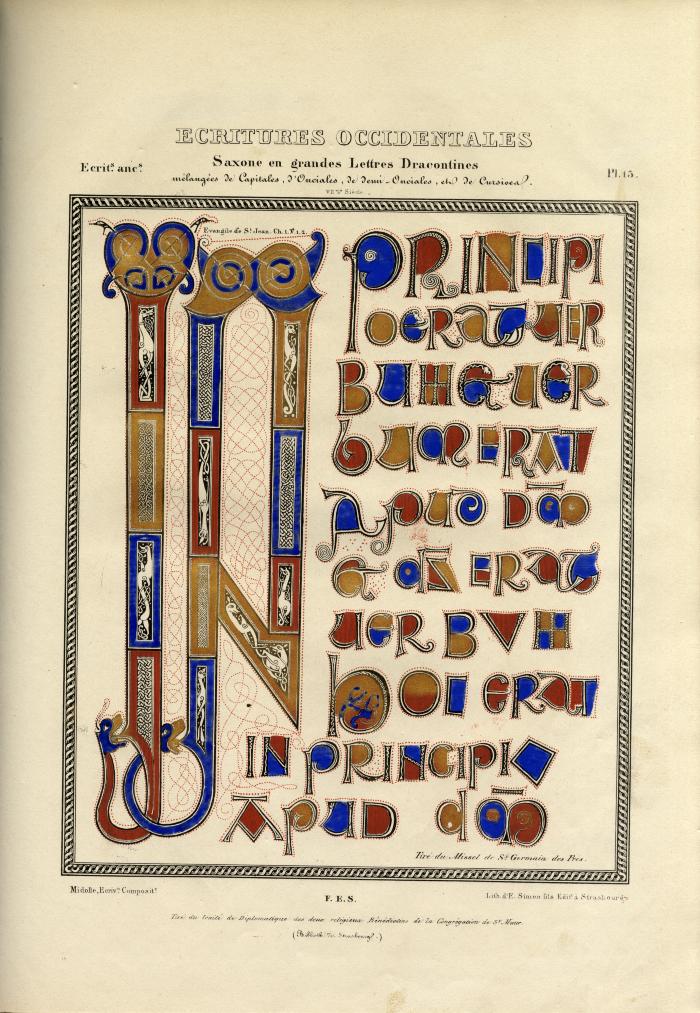 ECRITURES OCCIDENTALES
Ecrit.s anc.s
Saxone en grandes Lettres Dracontines
Pl. 15.
mélangées de Capitales, d'Onciales, de demi-Onciales, et de Cursives.
VII.me Siècle.
Evangile de S.t Jean. Ch. I. V. 1. 2.
IN PRINCIPI
O ERAT UER
BUM ET UER
BUM ERAT
APUD DM̄
ET DS̄ ERAT
UER BVM
hOC ERAT
IN PRINCIPIO
APUD dM̄
Tiré du Missel de S.t Germain des Pres.
Midolle, Ecriv.n Composit.r
F. E. S.
Lith. d'E. Simon fils Edit.r à Strasbourg.
Tiré du traité de Diplomatique des deux religieux Bénédictins de la Congrégation de S.t Maur.
(Biblioth. de Strasbourg.)